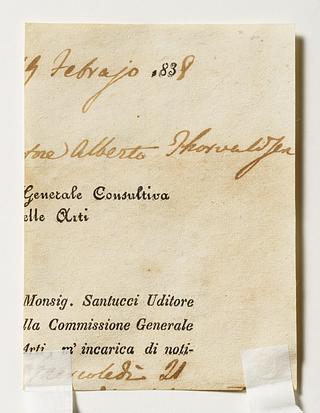 19 Febrajo 1838
tore Alberto Thorvaldsen
Generale Consultiva
elle Arti
Monsig. Santucci Uditore
lla Commissione Generale
Arti m'incarica di noti-
mercoledì 21